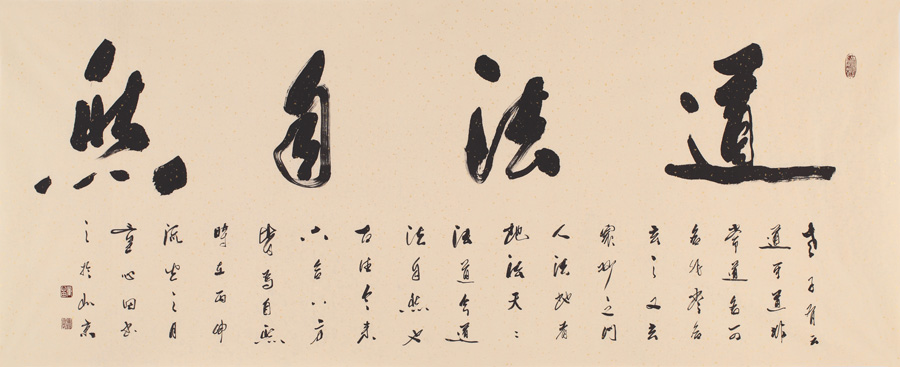 道法自然
老子有云
道可道非
常道名可
名非常名
玄之又玄
眾妙之門
人法地者
地法天〻
法道道
法自然也
古往今来
六合八方
為自然
時在丙申
流火之月
心田書
之於北京